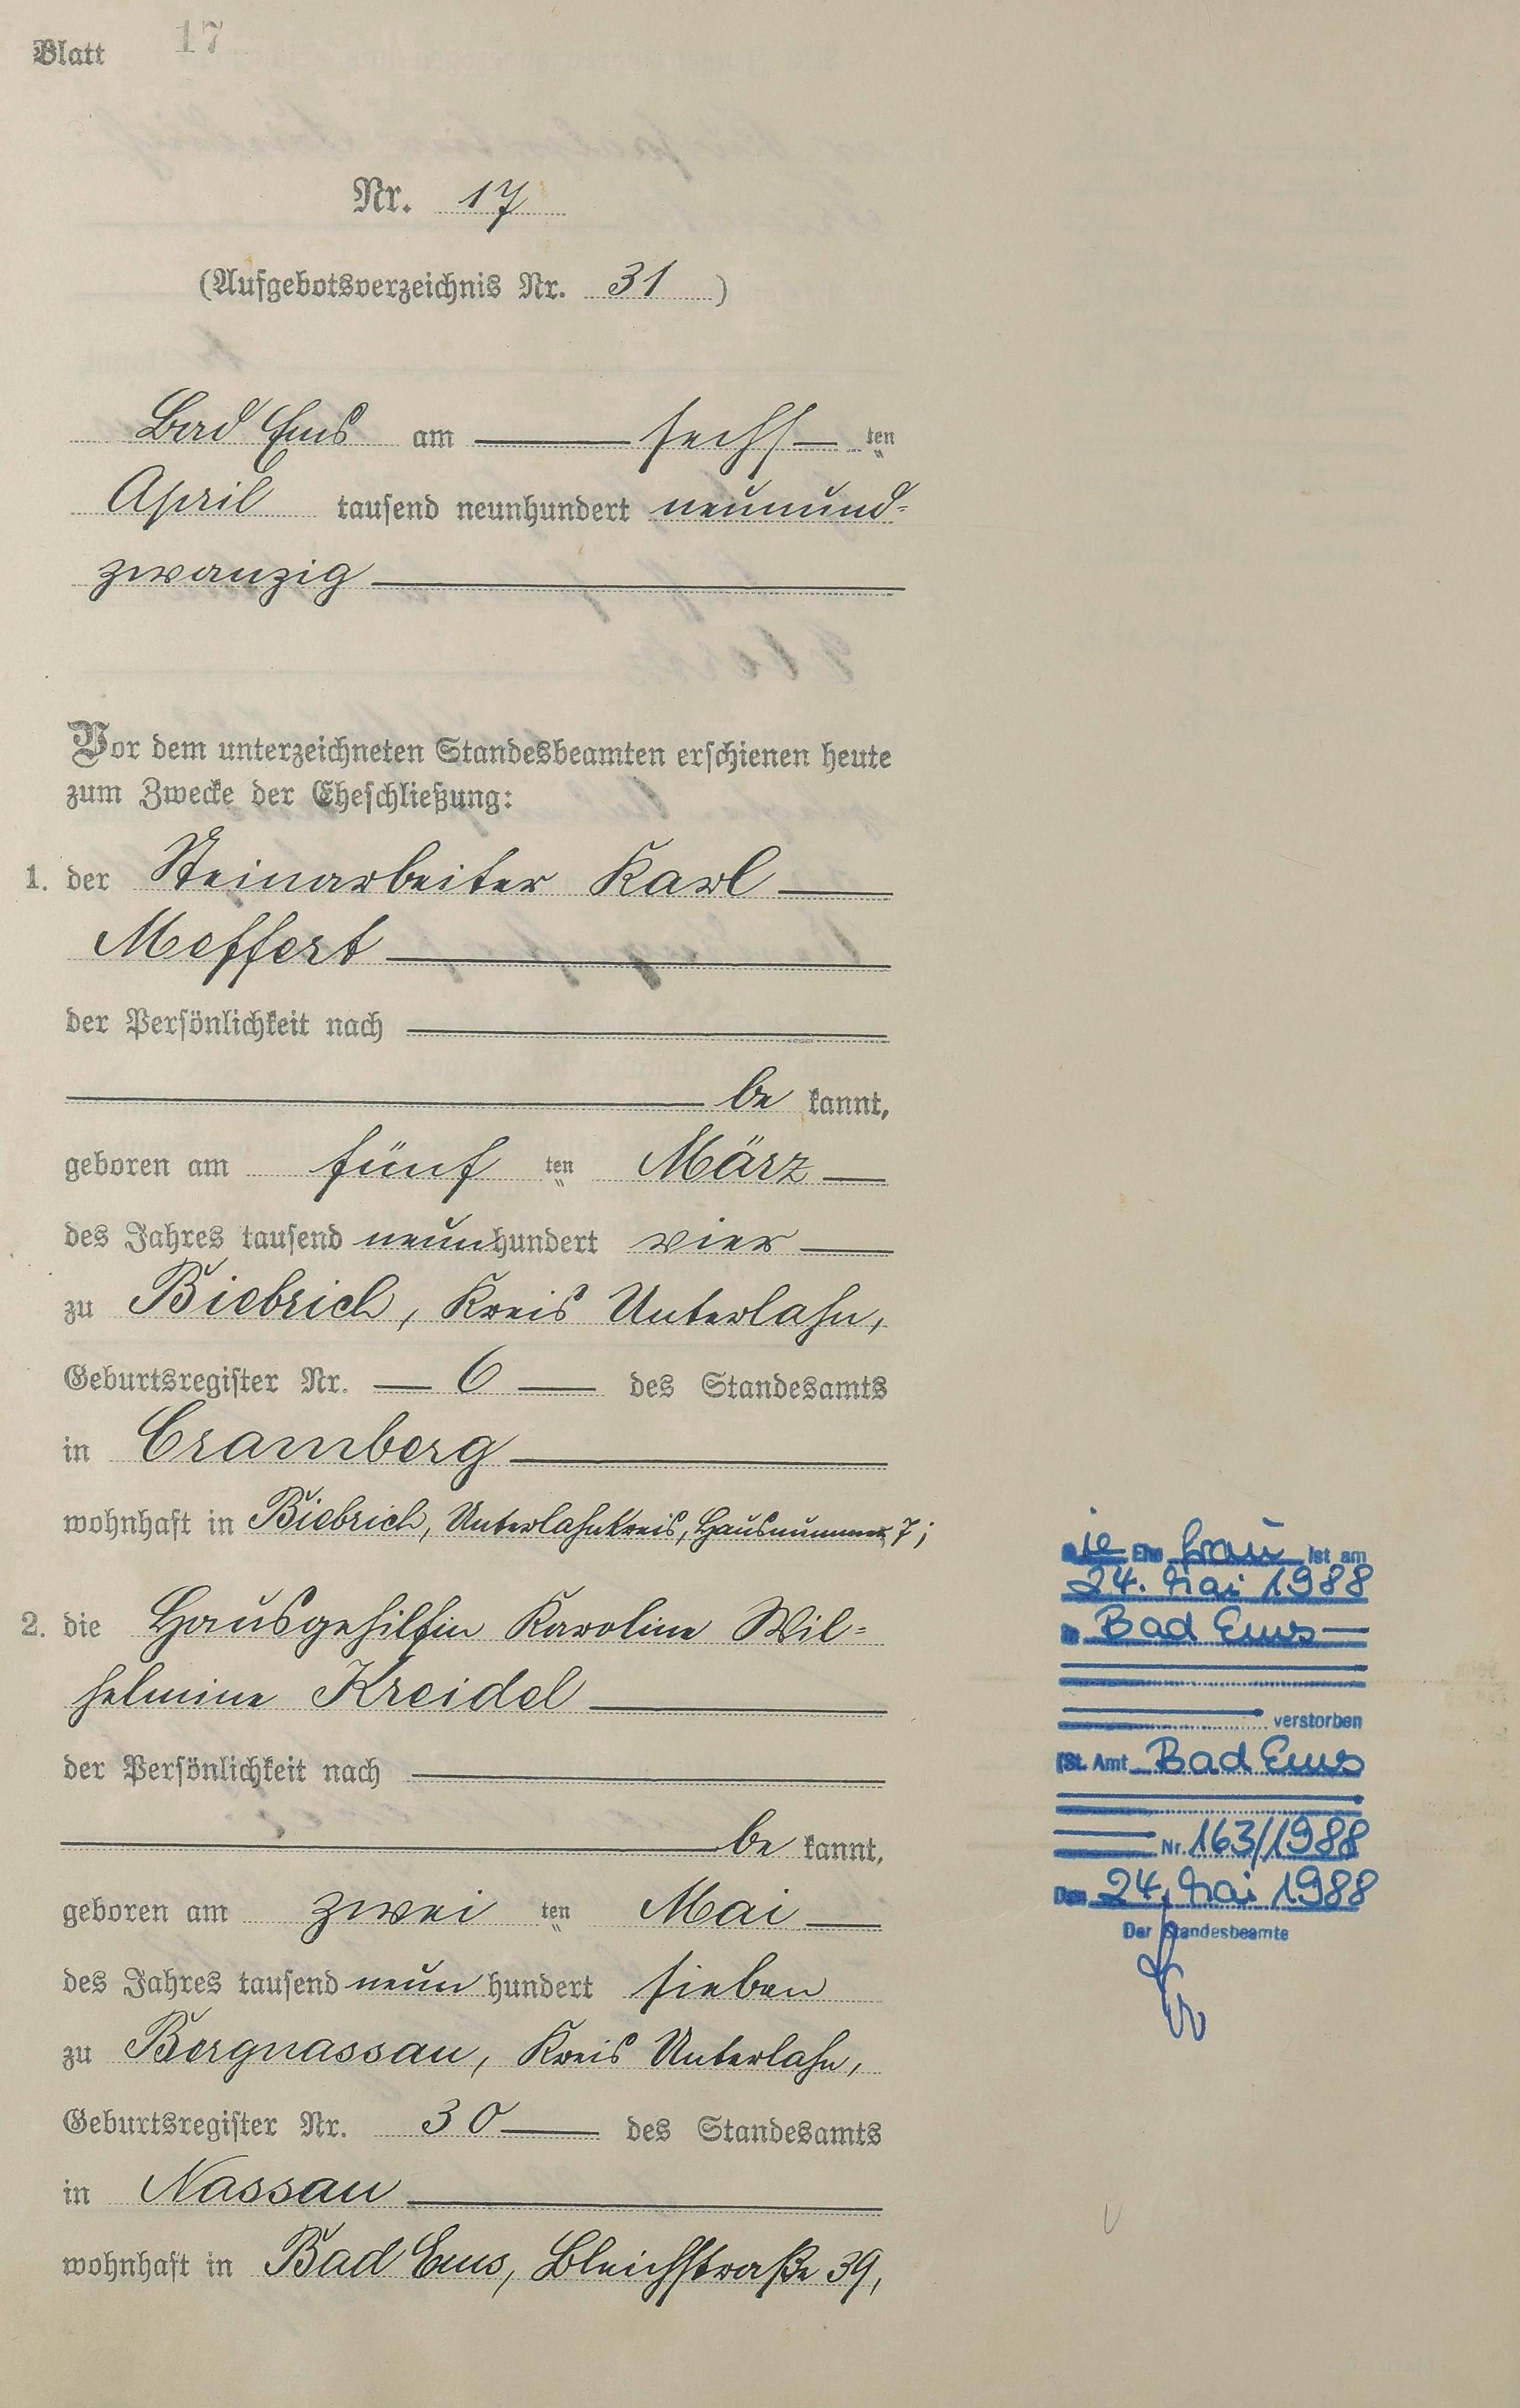 Blatt 17
Nr. 17
(Aufgebotsverzeichnis Nr. 31)
Bad Ems am sechs ten
April tausend neunhundert neunund-
zwanzig
Vor dem unterzeichneten Standesbeamten erschienen heute
zum Zwecke der Eheschließung:
1. der Steinarbeiter Karl
Meffert
der Persönlichkeit nach
be kannt,
geboren am fünf ten März
des Jahres tausend neunhundert vier
zu Biebrich, Kreis Unterlahn,
Geburtsregister Nr. 6 des Standesamts
in Cramberg
wohnhaft in Biebrich, Unterlahnkreis, Hausnummer 7;
2. die Hausgehilfin Karoline Wil=
helmine Kreidel
der Persönlichkeit nach
be kannt,
geboren am zwei ten Mai
des Jahres tausend neun hundert sieben
zu Bergnassau, Kreis Unterlahn,
Geburtsregister Nr. 30 des Standesamts
in Nassau
wohnhaft in Bad Ems, Bleichstraße 39,
ie Ehe frau ist am
24. Mai 1988
in Bad Ems
verstorben
(St. Amt Bad Ems
Nr. 163/1988
Den 24. Mai 1988
Der Standesbeamte